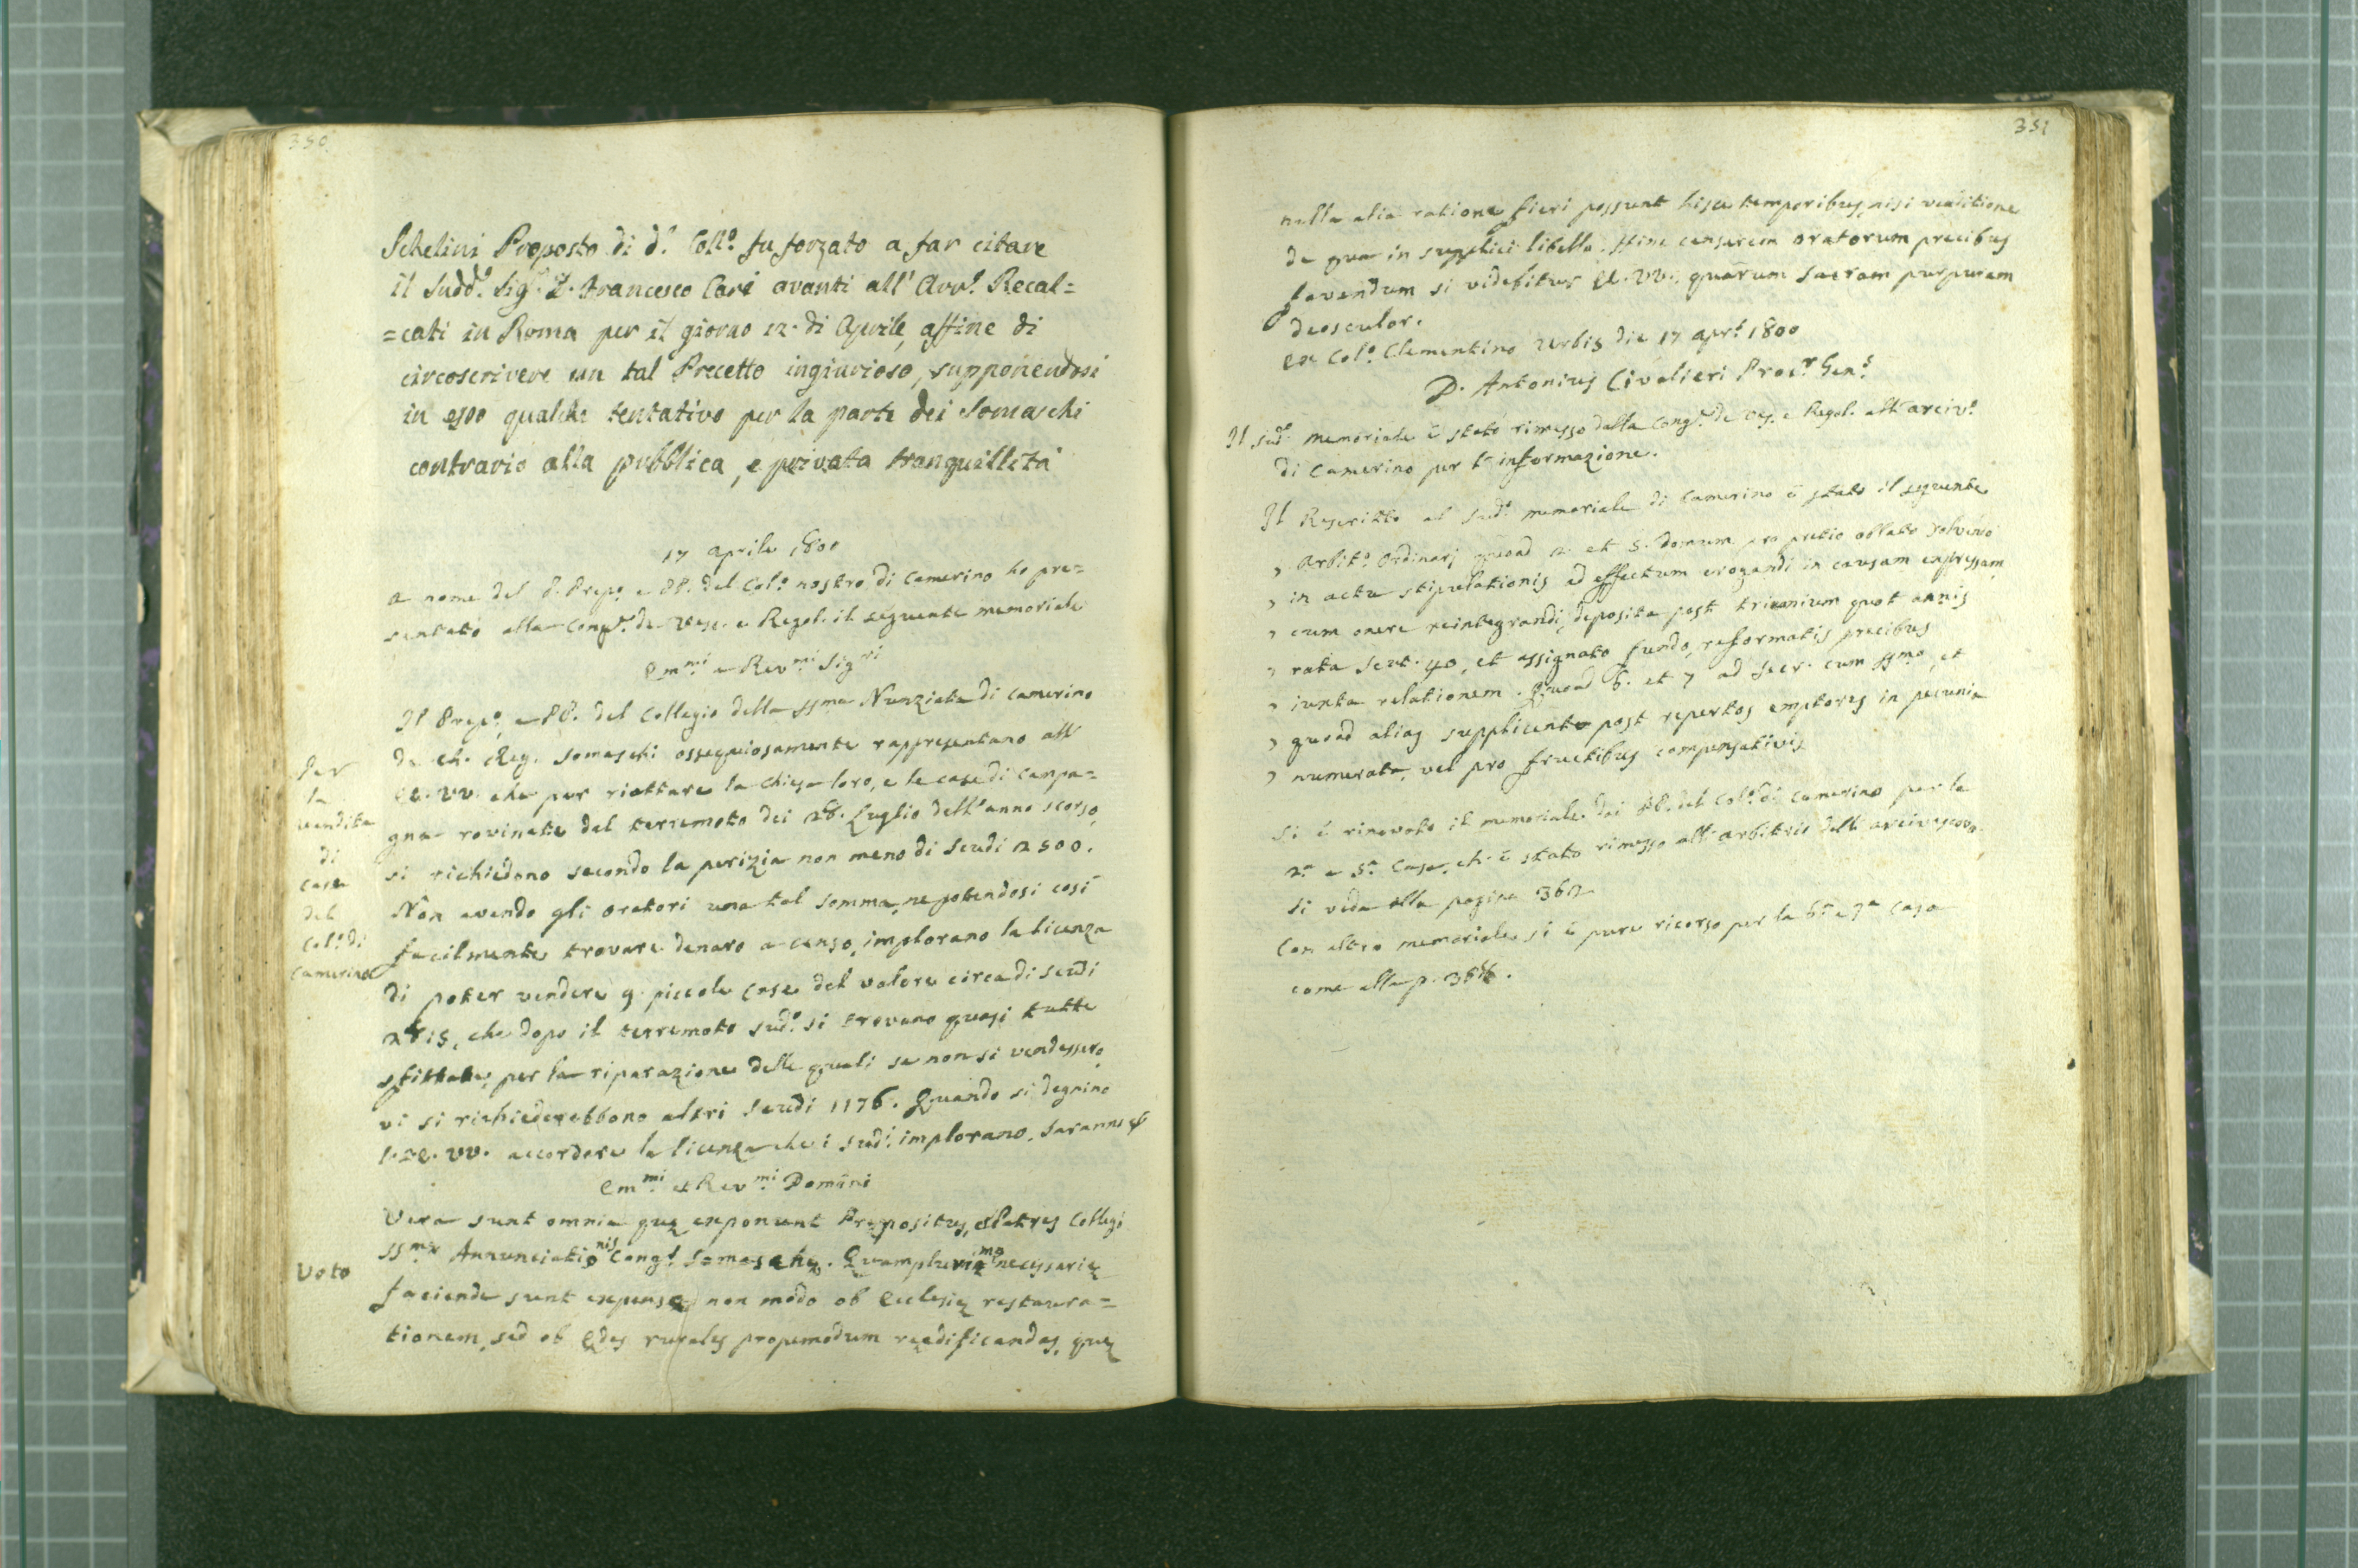 350
Schelini Proposto di d.º Coll.º fu forzato a far citare
il Sudd.º Sig.r D. Francesco Cari avanti all' Avv.º Recal=
=cati in Roma per il giorno 12. di Aprile, affine di
circoscrivere un tal Precetto ingiurioso, supponendosi
in esso qualche tentativo per la parte dei Somaschi
contrario alla pubblica, e privata tranquillità
17 aprile 1800
A nome del P. Prep.º e PP. del Col.º nostro di Camerino ho pre=
sentato alla Cong.e de Vesc. e Regol. il seguente memoriale
Em.mi e Rev.mi Sig.ri
Il Prep.º e PP. del Collegio della SS.ma Nunziata di Camerino
de Ch. Reg. Somaschi ossequiosamente rappresentano all'
EE. VV. che per riattare la Chiesa loro, e le case di campa=
gna rovinate dal terremoto dei 28. Luglio dell'anno scorso,
si richiedono secondo la perizia non meno di Scudi 2500.
Non avendo gli oratori una tal somma, ne potendosi così
facilmente trovare denaro a censo, implorano la licenza
di poter vendere 9. piccole case del valore circa di scudi
2815, che dopo il terremoto sud.º si trovano quasi tutte
sfittate, per la riparazione delle quali se non si vendessero,
vi si richiederebbono altri scudi 1176. Quando si degnino
l'EE. VV. accordare la licenza che i sud.i implorano. Saranno &
Per
la
vendita
di
case
del
Col.º di
Camerino
Em.mi et Rev.mi Domini
Voto
Vera sunt omnia quę exponunt Prępositus, et Patres Collegi
SS.mę Annunciationis Cong.s Somaschę. Quamplurimę necessarię
faciendę sunt expensę non modo ob Ecclesię restaura=
tionem, sed ob ędes rurales propemodum reędificandas, quę
351
nulla alia ratione fieri possunt hisce temporibus, nisi venditione
de qua in supplici libello. Hinc censerem oratorum precibus
favendum si videbitur EE. VV., quarum sacram purpuram
deosculor.
Ex Col.º Clementino Urbis die 17 apr.s 1800
D. Antonius Civalieri Proc.r Gen.s
Il sud.º memoriale è stato rimesso dalla Cong.e de Ves. e Regol. all'arciv.º
di Camerino per l'informazione.
Il Rescritto al sud.º memoriale di Camerino è stato il seguente
, Arbit.º Ordinarj quoad 2. et 5. domum pro pretio oblato solvendo
, in actu stipulationis ad effectum erogandi in causam expressam
, cum onere reintegrandi, deposita post triennium quot annis
, rata scut. 40, et assignato fundo, reformatis precibus
, iuxta relationem. Quoad 6. et 7 ad Secr. cum SS.mo, et
, quoad alias supplicent post repertos emptores in pecunia
, numerata, vel pro fructibus compensativis
Si è rinovato il memoriale dai PP. del Col.º di Camerino per la
2.a e 5.a Casa, ch'è stato rimesso all'arbitrio dell'arcivescovo.
Si veda alla pagina 362
Con altro memoriale si è pure ricorso per la 6.a e 7.a casa
come alla p.